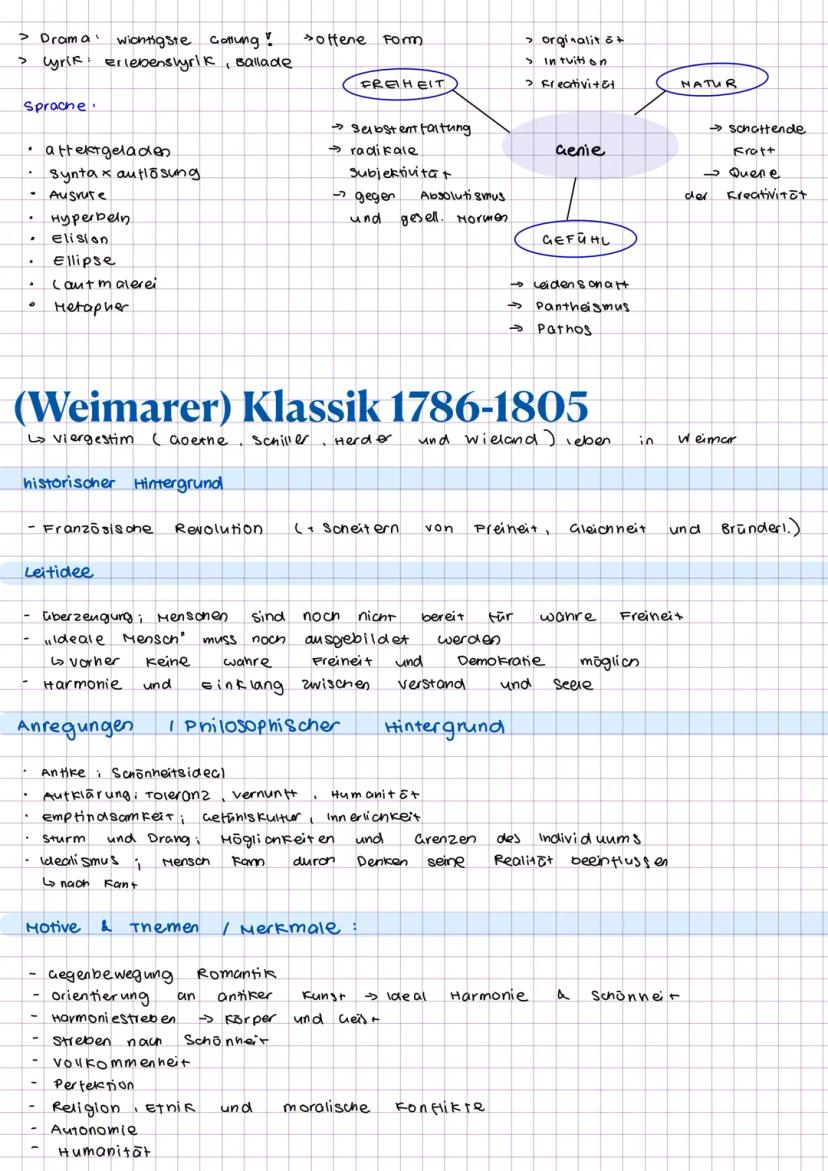 > Drama: wichtigste Gattung! → offene Form
> Lyrik: Erlebenslyrik, Ballade
Sprache:
• affektgeladen
• Syntaxauflösung
• Ausrufe
• Hyperbeln
• Elision
• Ellipse
• Lautmalerei
• Metapher
> Orginalität
> Intuition
> Kreativität
FREIHEIT
→ Selbstentfaltung
→ radikale
Subjektivität
→ gegen Absolutismus
und gesell. Normen
Genie
NATUR
→ schaffende
Kraft
→ Quelle
der Kreativität
GEFÜHL
→ Leidenschaft
→ Pantheismus
→ Pathos
(Weimarer) Klassik 1786-1805
↳ Viergestirn (Goethe, Schiller, Herder und Wieland) leben in Weimar
historischer Hintergrund
- Französische Revolution (+ Scheitern von Freiheit, Gleichheit und Brüderl.)
Leitidee
- Überzeugung; Menschen sind noch nicht bereit für wahre Freiheit
- „Ideale Mensch" muss noch ausgebildet werden
↳ vorher keine wahre Freiheit und Demokratie möglich
- Harmonie und Einklang zwischen Verstand und Seele
Anregungen / Philosophischer Hintergrund
• Antike; Schönheitsideal
• Aufklärung; Toleranz, Vernunft, Humanität
• Empfindsamkeit; Gefühlskultur, Innerlichkeit
• Sturm und Drang; Möglichkeiten und Grenzen des Individuums
• Idealismus; Mensch kann durch Denken seine Realität beeinflussen
↳ nach Kant
Motive & Themen / Merkmale:
- Gegenbewegung Romantik
- Orientierung an antiker Kunst → Ideal Harmonie & Schönheit
- Harmoniestreben → Körper und Geist
- Streben nach Schönheit
- Vollkommenheit
- Perfektion
- Religion, Ethik und moralische Konflikte
- Autonomie
- Humanität